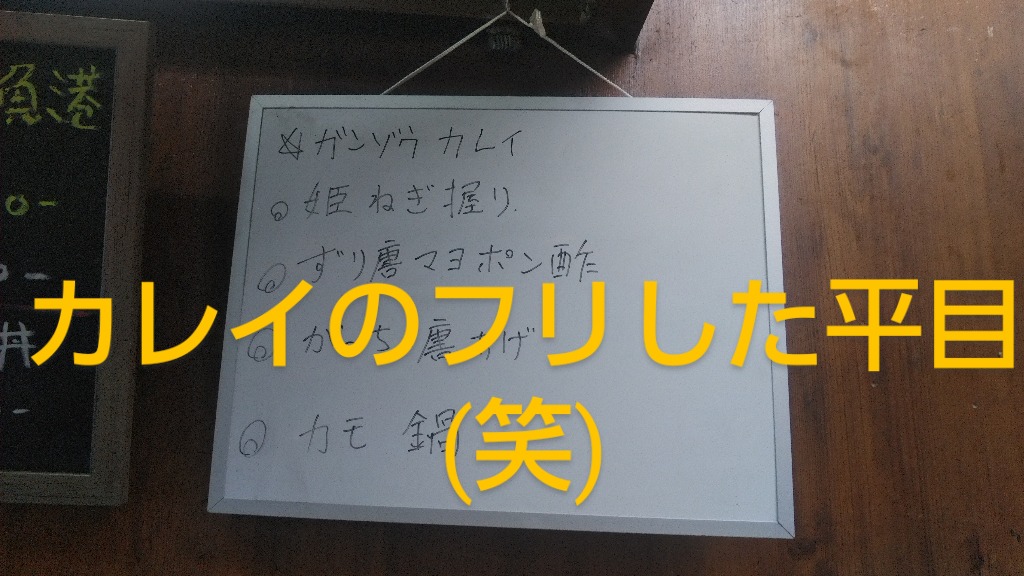 負港
0-
0-
井
-
☆ガンゾウカレイ
◎姫ねぎ握り
◎ずり唐マヨポン酢
◎がっち唐あげ
◎カモ鍋
カレイのフリした平目
(笑)